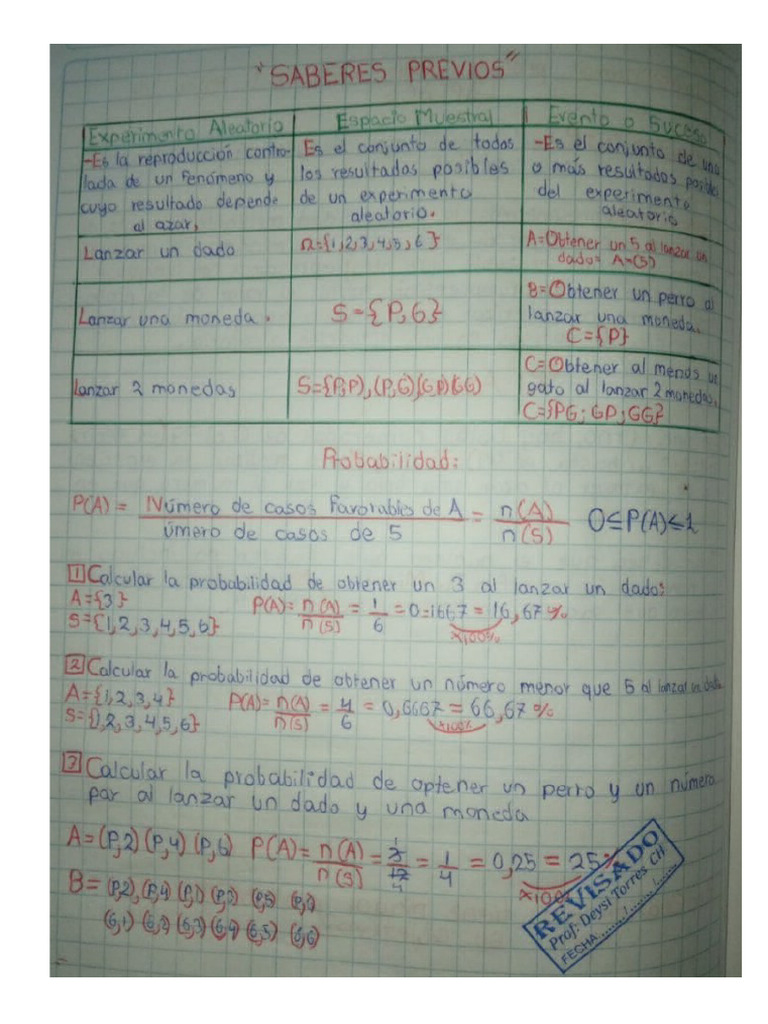 "SABERES PREVIOS"
Experimento Aleatorio
-Es la reproducción contro-
lada de un fenómeno y
cuyo resultado depende
al azar.
Espacio Muestral
Es el conjunto de todos
los resultados posibles
de un experimento
aleatorio.
Evento o Suceso
-Es el conjunto de uno
o más resultados posibles
del experimento
aleatorio
Lanzar un dado
n={1,2,3,4,5,6}
A=Obtener un 5 al lanzar un
dado= A=(5)
Lanzar una moneda.
S={P,G}
B=Obtener un perro al
lanzar una moneda.
C={P}
Lanzar 2 monedas
S={P,P),(P,G)(GP)(GG)
C=Obtener al menos un
gato al lanzar 2 monedas.
C={PG; GP; GG}
Probabilidad:
P(A) = Número de casos Favorables de A = n(A) 0≤P(A)≤1
úmero de casos de S n(S)
1 Calcular la probabilidad de obtener un 3 al lanzar un dado:
A={3} P(A)= n(A) = 1 = 0=1667 = 16,67%
S={1,2,3,4,5,6} n(S) 6 x100%
2 Calcular la probabilidad de obtener un número menor que 5 al lanzar un dado
A={1,2,3,4} P(A)= n(A) = 4 = 0,6667 = 66,67%
S={1,2,3,4,5,6} n(S) 6 x100%
3 Calcular la probabilidad de optener un perro y un número
par al lanzar un dado y una moneda
A=(P,2) (P,4) (P,6) P(A)= n(A) = 3 = 1 = 0,25 = 25%
n(S) 12 4 x100%
B=
(G,1) (G,2) (G,3) (G,4) (G,5) (G,6)
REVISADO
Prof: Deysi Torres CH
FECHA......./......./.......